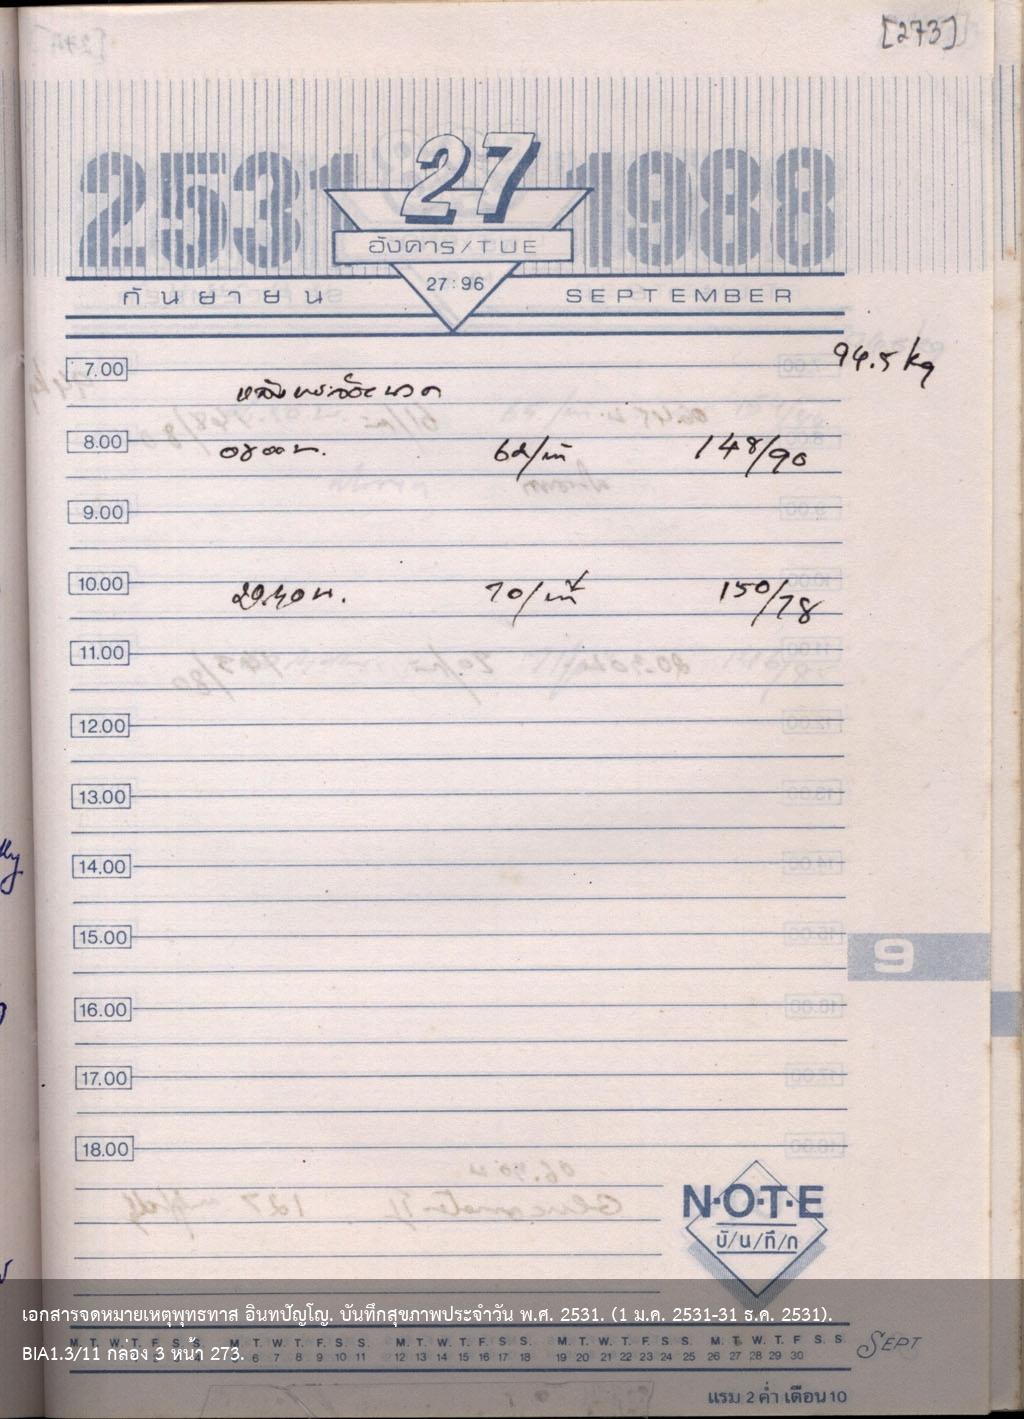 [273]
2531 27 1988
อังคาร/TUE
27:96
กันยายน SEPTEMBER
94.5 kg
7.00
8.00
148/90
9.00
10.00
70/ 150/78
11.00
12.00
13.00
14.00
15.00
9
16.00
17.00
18.00
N·O·T·E
บั/น/ทึ/ก
เอกสารจดหมายเหตุพุทธทาส อินทปัญโญ. บันทึกสุขภาพประจำวัน พ.ศ. 2531. (1 ม.ค. 2531-31 ธ.ค. 2531).
M. T. W. T. F. S. S. M. T. W. T. F. S. S. M. T. W. T. F. S. S. M. T. W. T. F. S. S. M. T. W. T. F. S. S.
6 7 8 9 10 11 12 13 14 15 16 17 18 19 20 21 22 23 24 25 26 27 28 29 30
SEPT
BIA1.3/11 กล่อง 3 หน้า 273.
แรม 2 ค่ำ เดือน 10